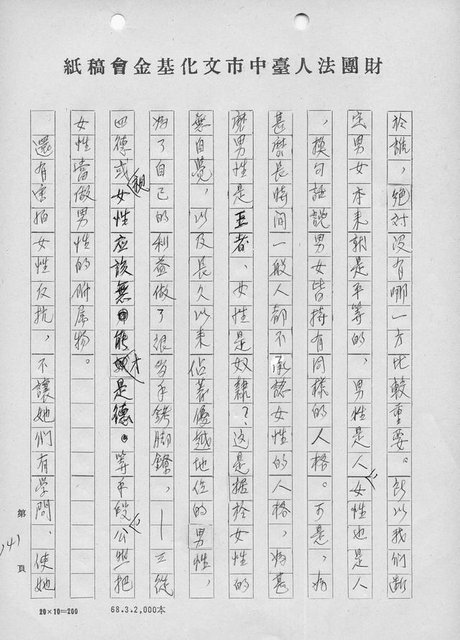 財團法人臺中市文化基金會稿紙
於誰，絕對沒有哪一方比較重要。所以我們斷
定男女本來就是平等的，男性是人，女性也是人
，換句話說男女皆持有同樣的人格。可是，為
甚麼長時間一般人都不承認女性的人格，為甚
麼男性是王者、女性是奴隸？這是據於女性的
無自覺，以及長久以來佔著優越地位的男性，
為了自己的利益做了很多手銬腳鐐，——三從
四德或視女性應該無才是德。等手段，公然把
女性當做男性的附屬物。
還有害怕女性反抗，不讓她們有學問，使她
第141頁
20×10=200
68.3.2,000本